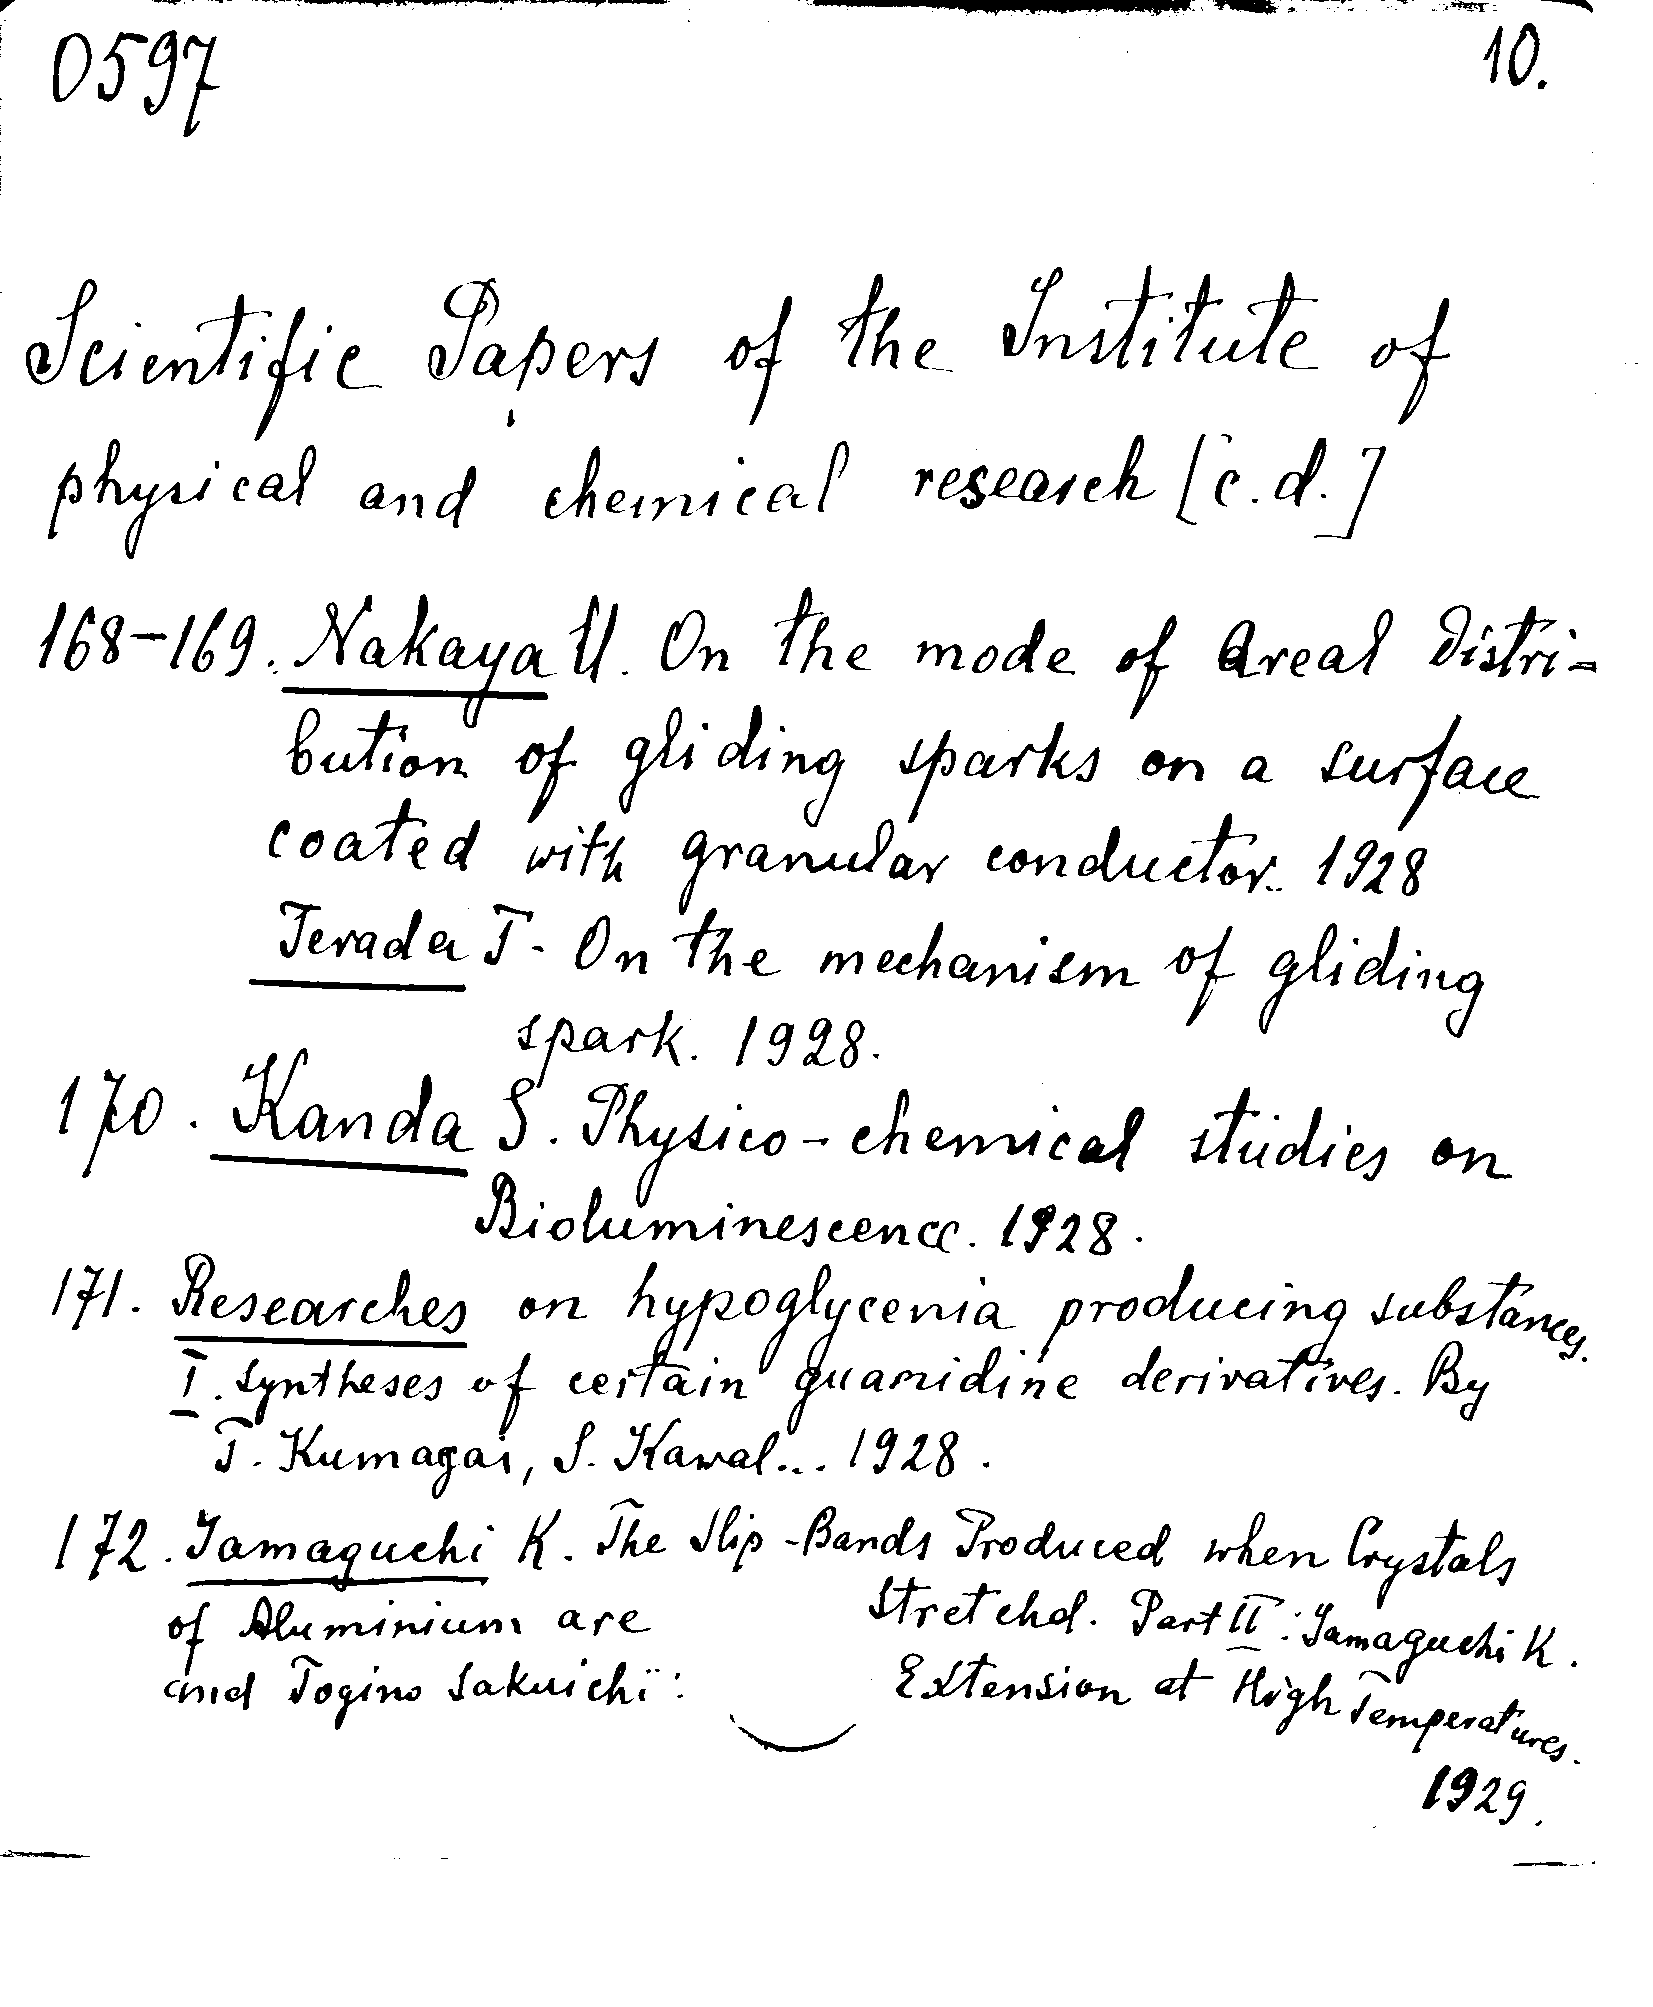 0597 10.
Scientific Papers of the Institute of
physical and chemical research [c.d.]
168-169. Nakaya U. On the mode of Areal Distri-
bution of gliding sparks on a surface
coated with granular conductor. 1928
Terada T. On the mechanism of gliding
spark. 1928.
170. Kanda S. Physico-chemical studies on
Bioluminescence. 1928.
171. Researches on hypoglycenia producing substances.
I. Syntheses of certain guanidine derivatives. By
T. Kumagai, S. Kawal... 1928.
172. Yamaguchi K. The Slip-Bands Produced when Crystals
of Aluminium are Stretchd. Part II: Yamaguchi K.
and Togino Sakuichi: Extension at High Temperatures.
1929.